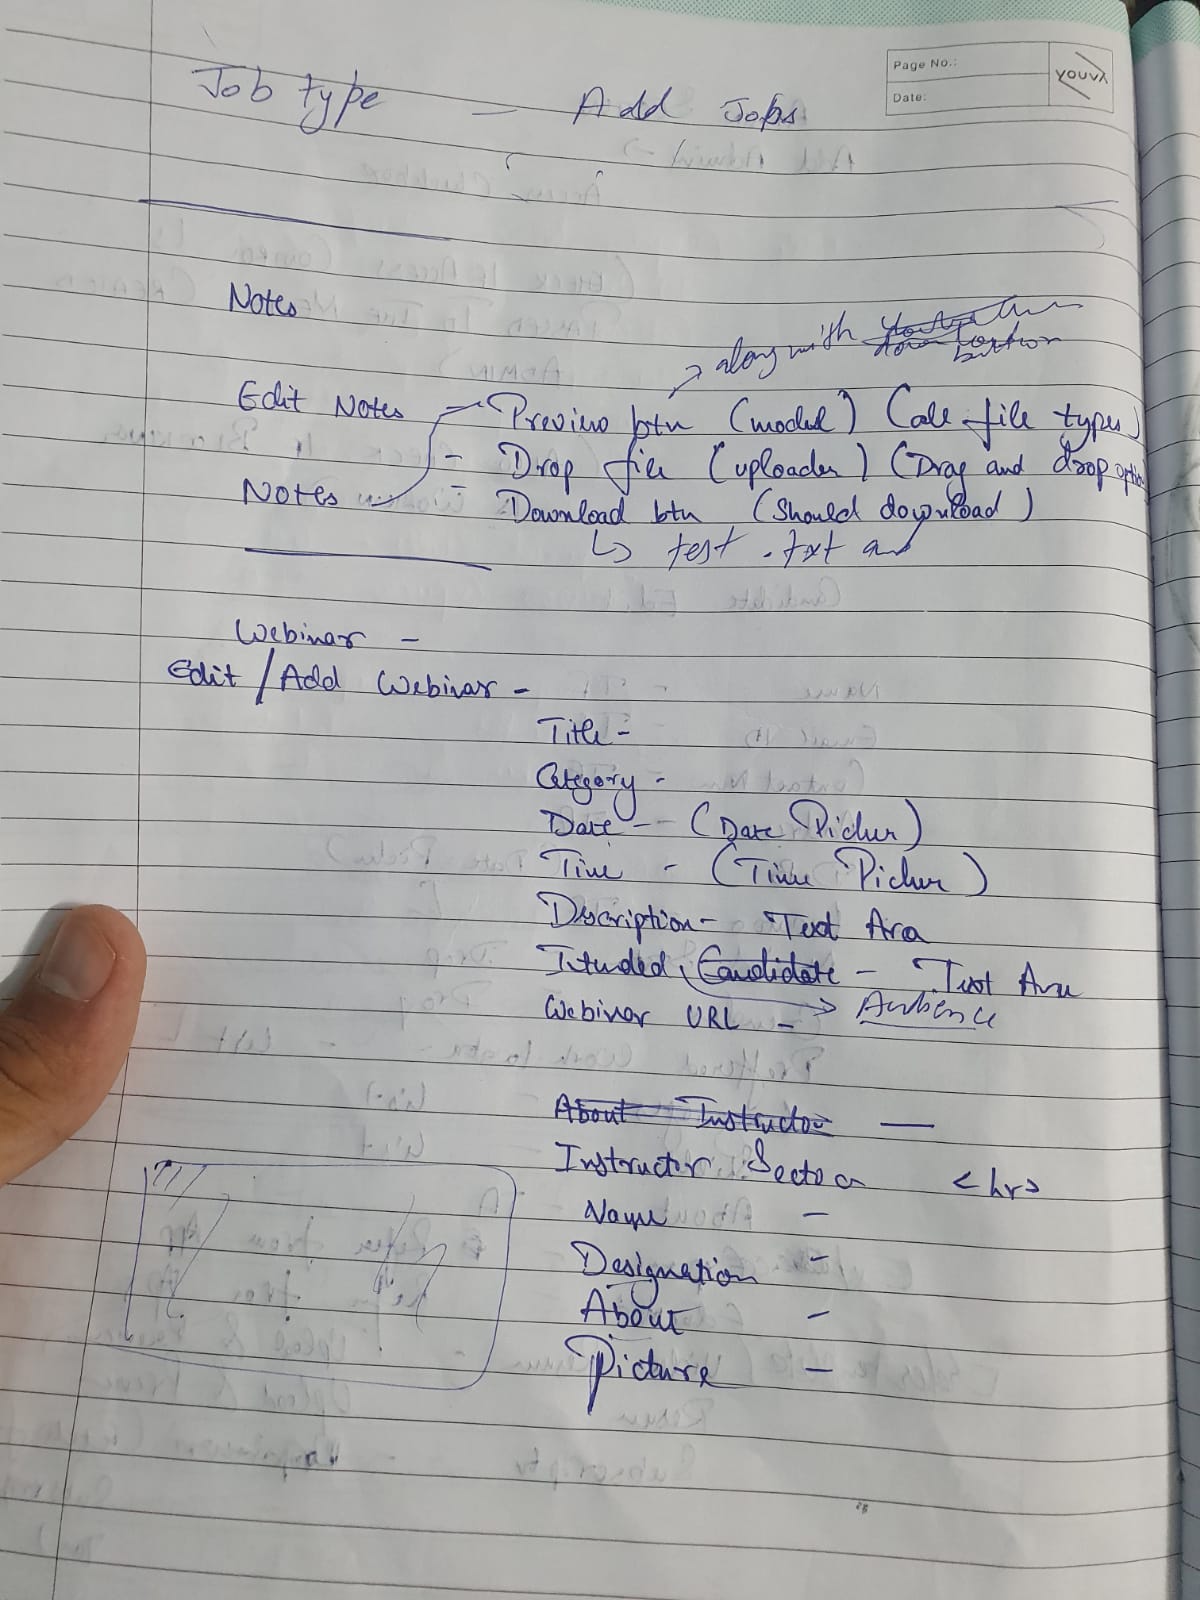 Page No.:
YOUVA
Date:
Job type — Add Jobs
Notes
along with
button
Edit Notes - Preview btn (model) (all file types)
- Drop file (uploader) (Drag and drop option
Notes - Download btn (Should download)
↳ test .txt and
Webinar -
Edit / Add Webinar -
Title -
Category -
Date - - (Date Picker)
Time - (Time Picker)
Description - Text Area
Intended Candidate - Text Area
Webinar URL - → Audience
About Instructor —
Instructor Section <hr>
Name -
Designation -
About -
Picture -